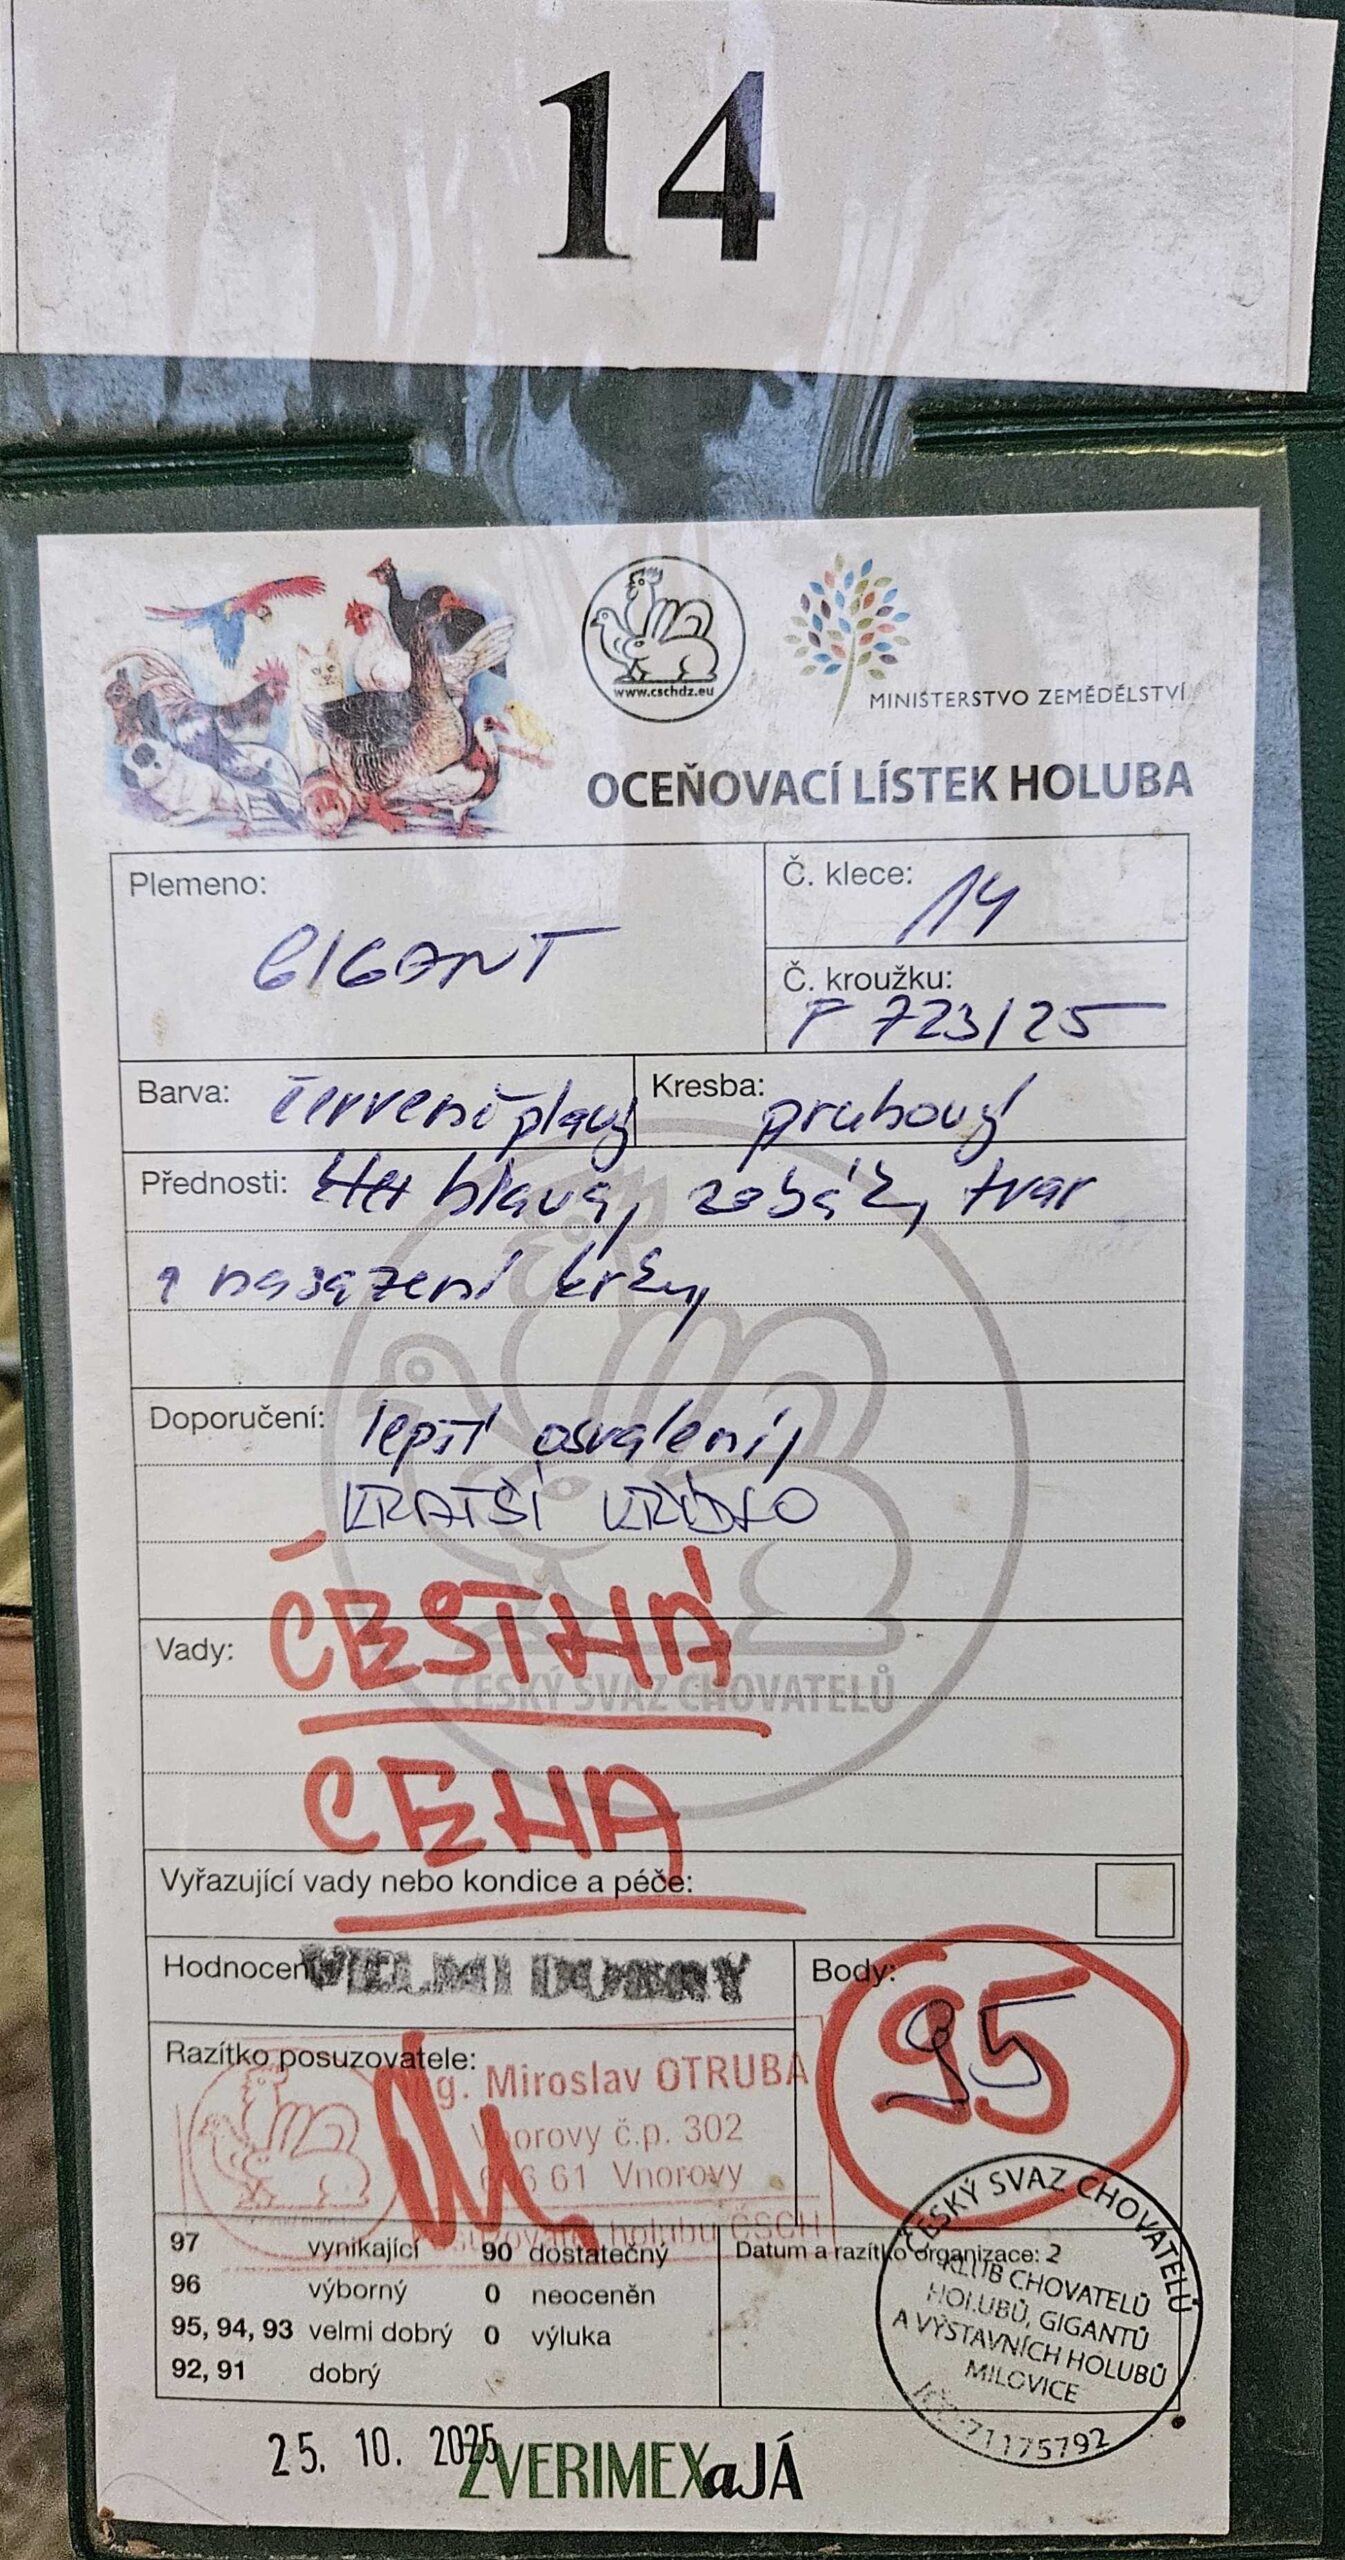 14
www.cschdz.eu
MINISTERSTVO ZEMĚDĚLSTVÍ
OCEŇOVACÍ LÍSTEK HOLUBA
Plemeno: GIGANT
Č. klece: 14
Č. kroužku: F 723/25
Barva: červeně plavý
Kresba: pruhový
Přednosti: hlava, zobák, tvar
a nasazení krku,
Doporučení: lepší osvalení,
KRATŠÍ KŘÍDLO
ČESTNÁ
Vady:
ČESKÝ SVAZ CHOVATELŮ
CENA
Vyřazující vady nebo kondice a péče:
Hodnocení VELMI DOBRÝ
Body: 95
Razítko posuzovatele:
Ing. Miroslav OTRUBA
Vnorovy č.p. 302
61 Vnorovy
holubů ČSCH
97 vynikající 90 dostatečný
96 výborný 0 neoceněn
95, 94, 93 velmi dobrý 0 výluka
92, 91 dobrý
Datum a razítko organizace: 2
ČESKÝ SVAZ CHOVATELŮ
KLUB CHOVATELŮ
HOLUBŮ, GIGANTŮ
A VÝSTAVNÍCH HOLUBŮ
MILOVICE
71175792
25. 10. 2025
ZVERIMEXaJÁ